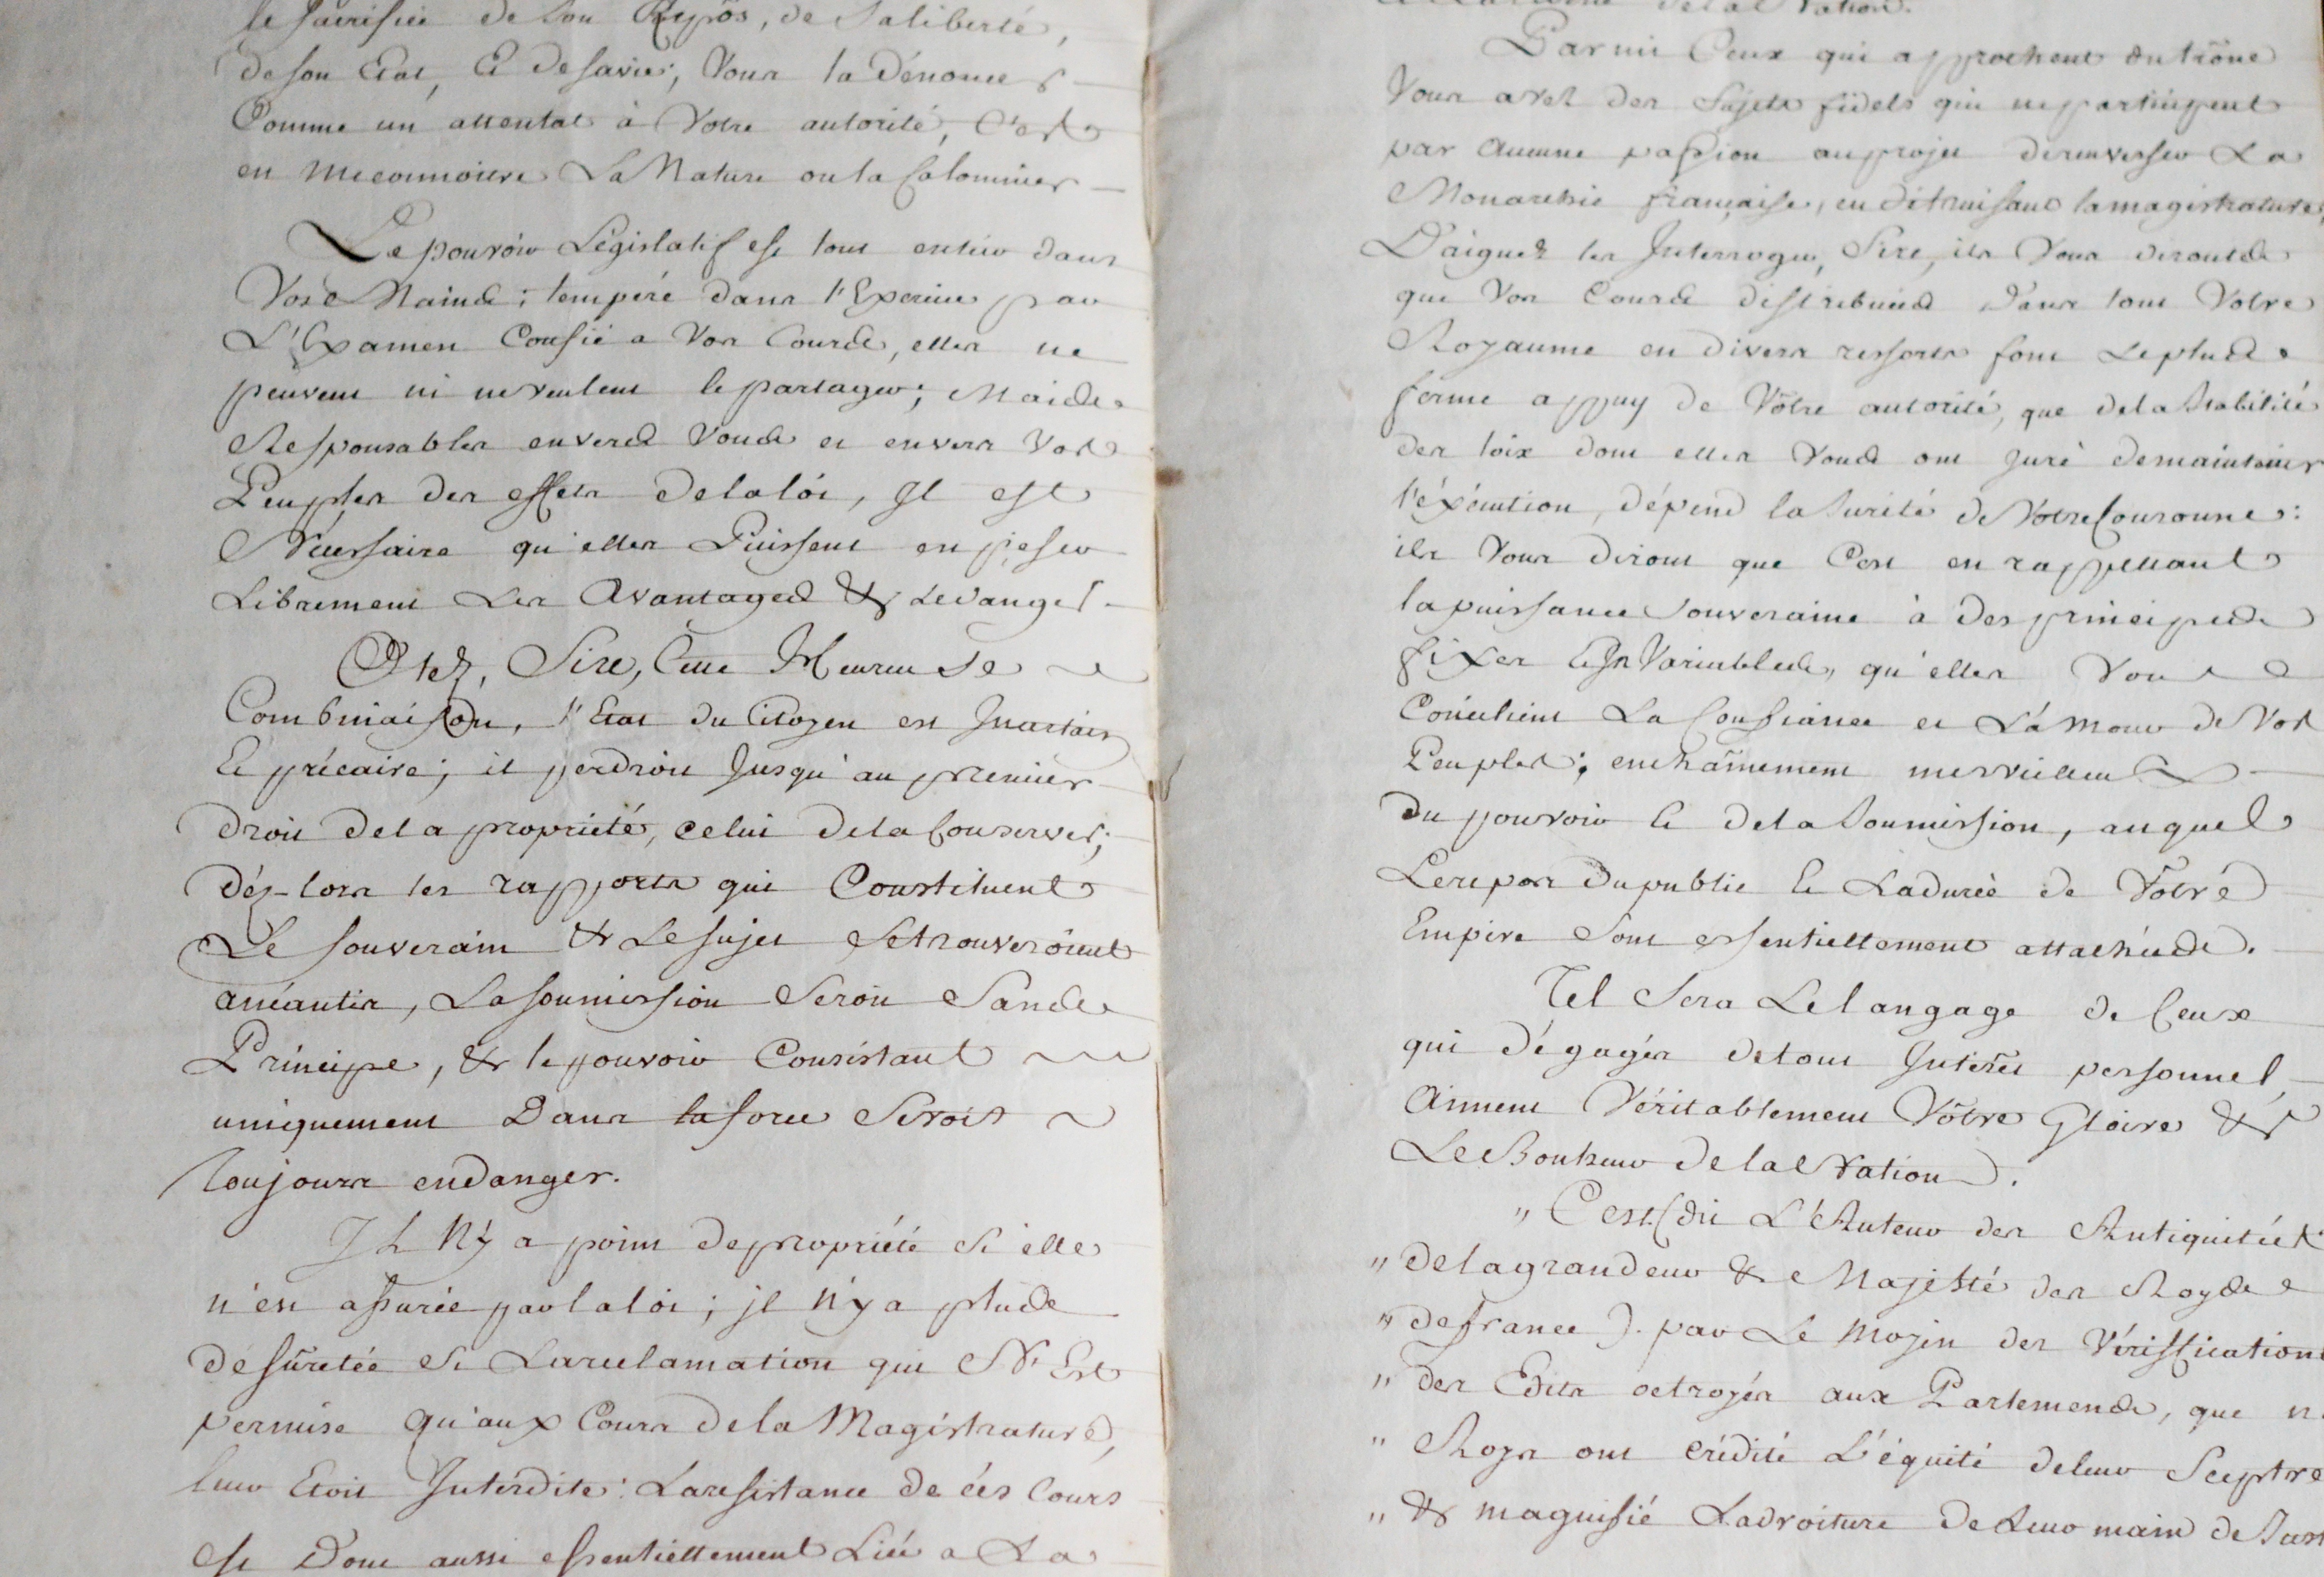 le sacrifice de son Repos, de sa liberté,
de son Etat, & de sa vie; Vous la dénoncer
Comme un attentat à Votre autorité, C'est
en meconnoitre La Nature ou la Calomnier
Le pouvoir Législatif est tout entier dans
Vos Mains; tempéré dans l'Exercice par
L'Examen Confié a Vos Cours, elles ne
peuvent ni ne veulent le partager; Mais
Responsables envers Vous et envers Vos
Peuples des effets de la lói, Il est
Nécessaire qu'elles Puissent en peser
Librement Les Avantages & Le danger.
Otez, Sire, Cette Heureuse
Combinaison, l'Etat du Citoyen est Incertain
Et précaire; il perdroit Jusqu'au premier
droit de la proprieté, celui de la Conserver;
dés-lors les rapports qui Constituent
Le souverain & Le sujet Se trouveroient
anéantis, La soumission Seroit Sans
Principe, & le pouvoir Consistant
uniquement Dans la force Seroit
Toujours en danger.
Il N'y a point de propriété Si elle
n'est assurée par la lói; il n'y a plus
de sûretée Si La reclamation qui N'Est
permise qu'aux Cours de la Magistrature,
leur Etoit Interdite: La resistance de cés Cours
est Donc aussi essentiellement Liée a La
de la Nation.
Parmi Ceux qui approchent du trône
Vous avez des Sujets fidels qui ne participent
par Aucune passion au projet de renverser La
Monarchie française, en détruisant la magistrature
Daignez les Interroger, Sire, ils Vous diront
que Vos Cours distribuées Dans tout Votre
Royaume en divers ressorts sont Le plus
ferme appuy de Vôtre autorité, que de la stabilité
des loix dont elles Vous ont Juré de maintenir
l'éxécution, dépend la Sureté de Votre Couronne:
ils Vous diront que C'est en rappellant
la puissance Souveraine à des principes
fixes & InVariables, qu'elles Vous
Concilient La Confiance et L'amour de Vos
Peuples; enchaînement merveilleux
du pouvoir & de la Soumission, auquel
Le repos du public & La durée de Vôtre
Empire Sont essentiellement attachés.
Tel Sera Le langage de Ceux
qui dégagés de tout Intérêt personnel,
Aiment Véritablement Vôtre Gloire &
Le Bonheur de la Nation.
" C'est (dit L'Auteur des Antiquitées
" de la grandeur & Majesté des Roys
" de france). par Le Moyen des Vériffications
" des Edits octroyés aux Parlements, que n
" Roys ont crédité L'équité de leur Sceptre
" & magnifié La droiture de Leur main de Just